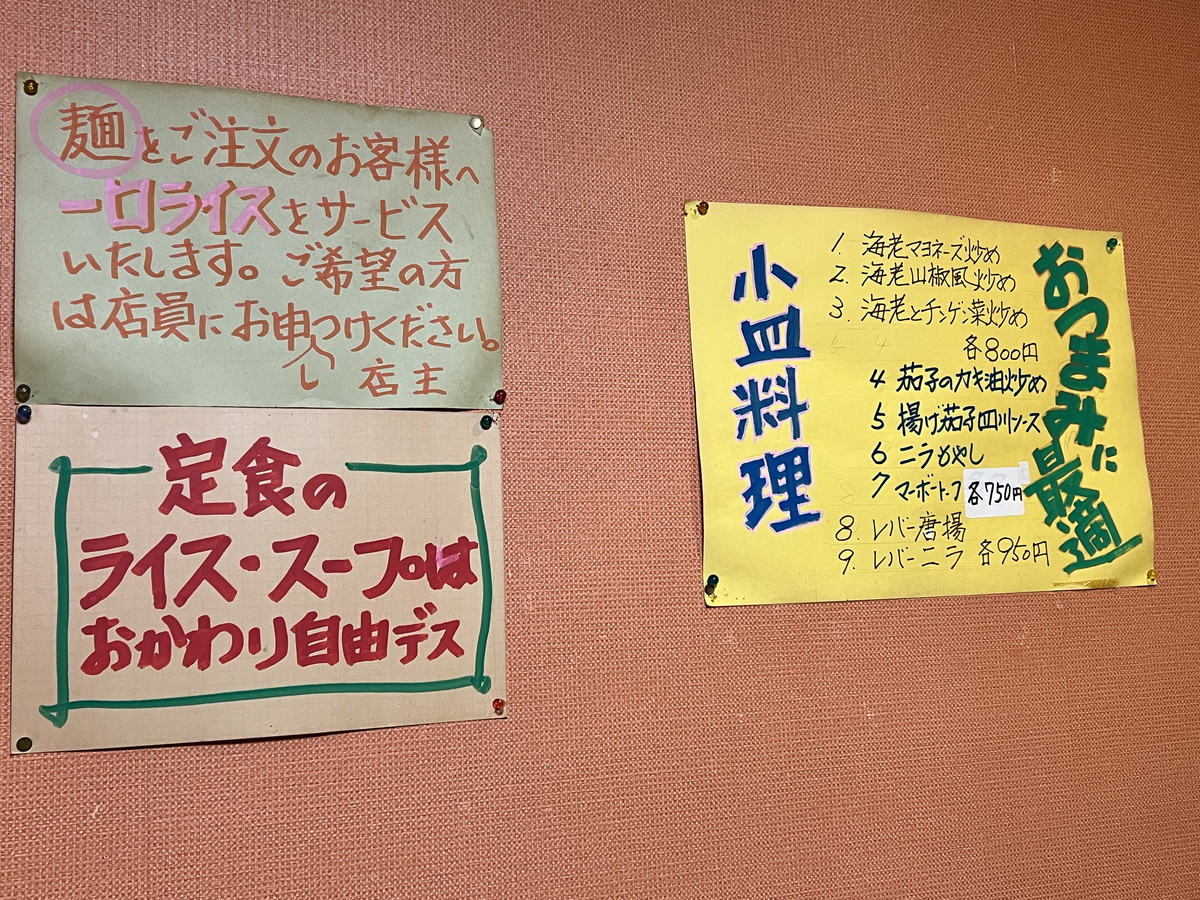 麺をご注文のお客様へ
一口ライスをサービス
いたします。ご希望の方
は店員にお申つけください。
し
店主
定食の
ライス・スープは
おかわり自由デス
おつまみに最適
1. 海老マヨネーズ炒め
2. 海老山椒風炒め
3. 海老とチンゲン菜炒め
各800円
4 茄子のカキ油炒め
5 揚げ茄子四川ソース
6 ニラもやし
7 マーボートーフ 各750円
8. レバー唐揚
9. レバーニラ 各950円
小皿料理